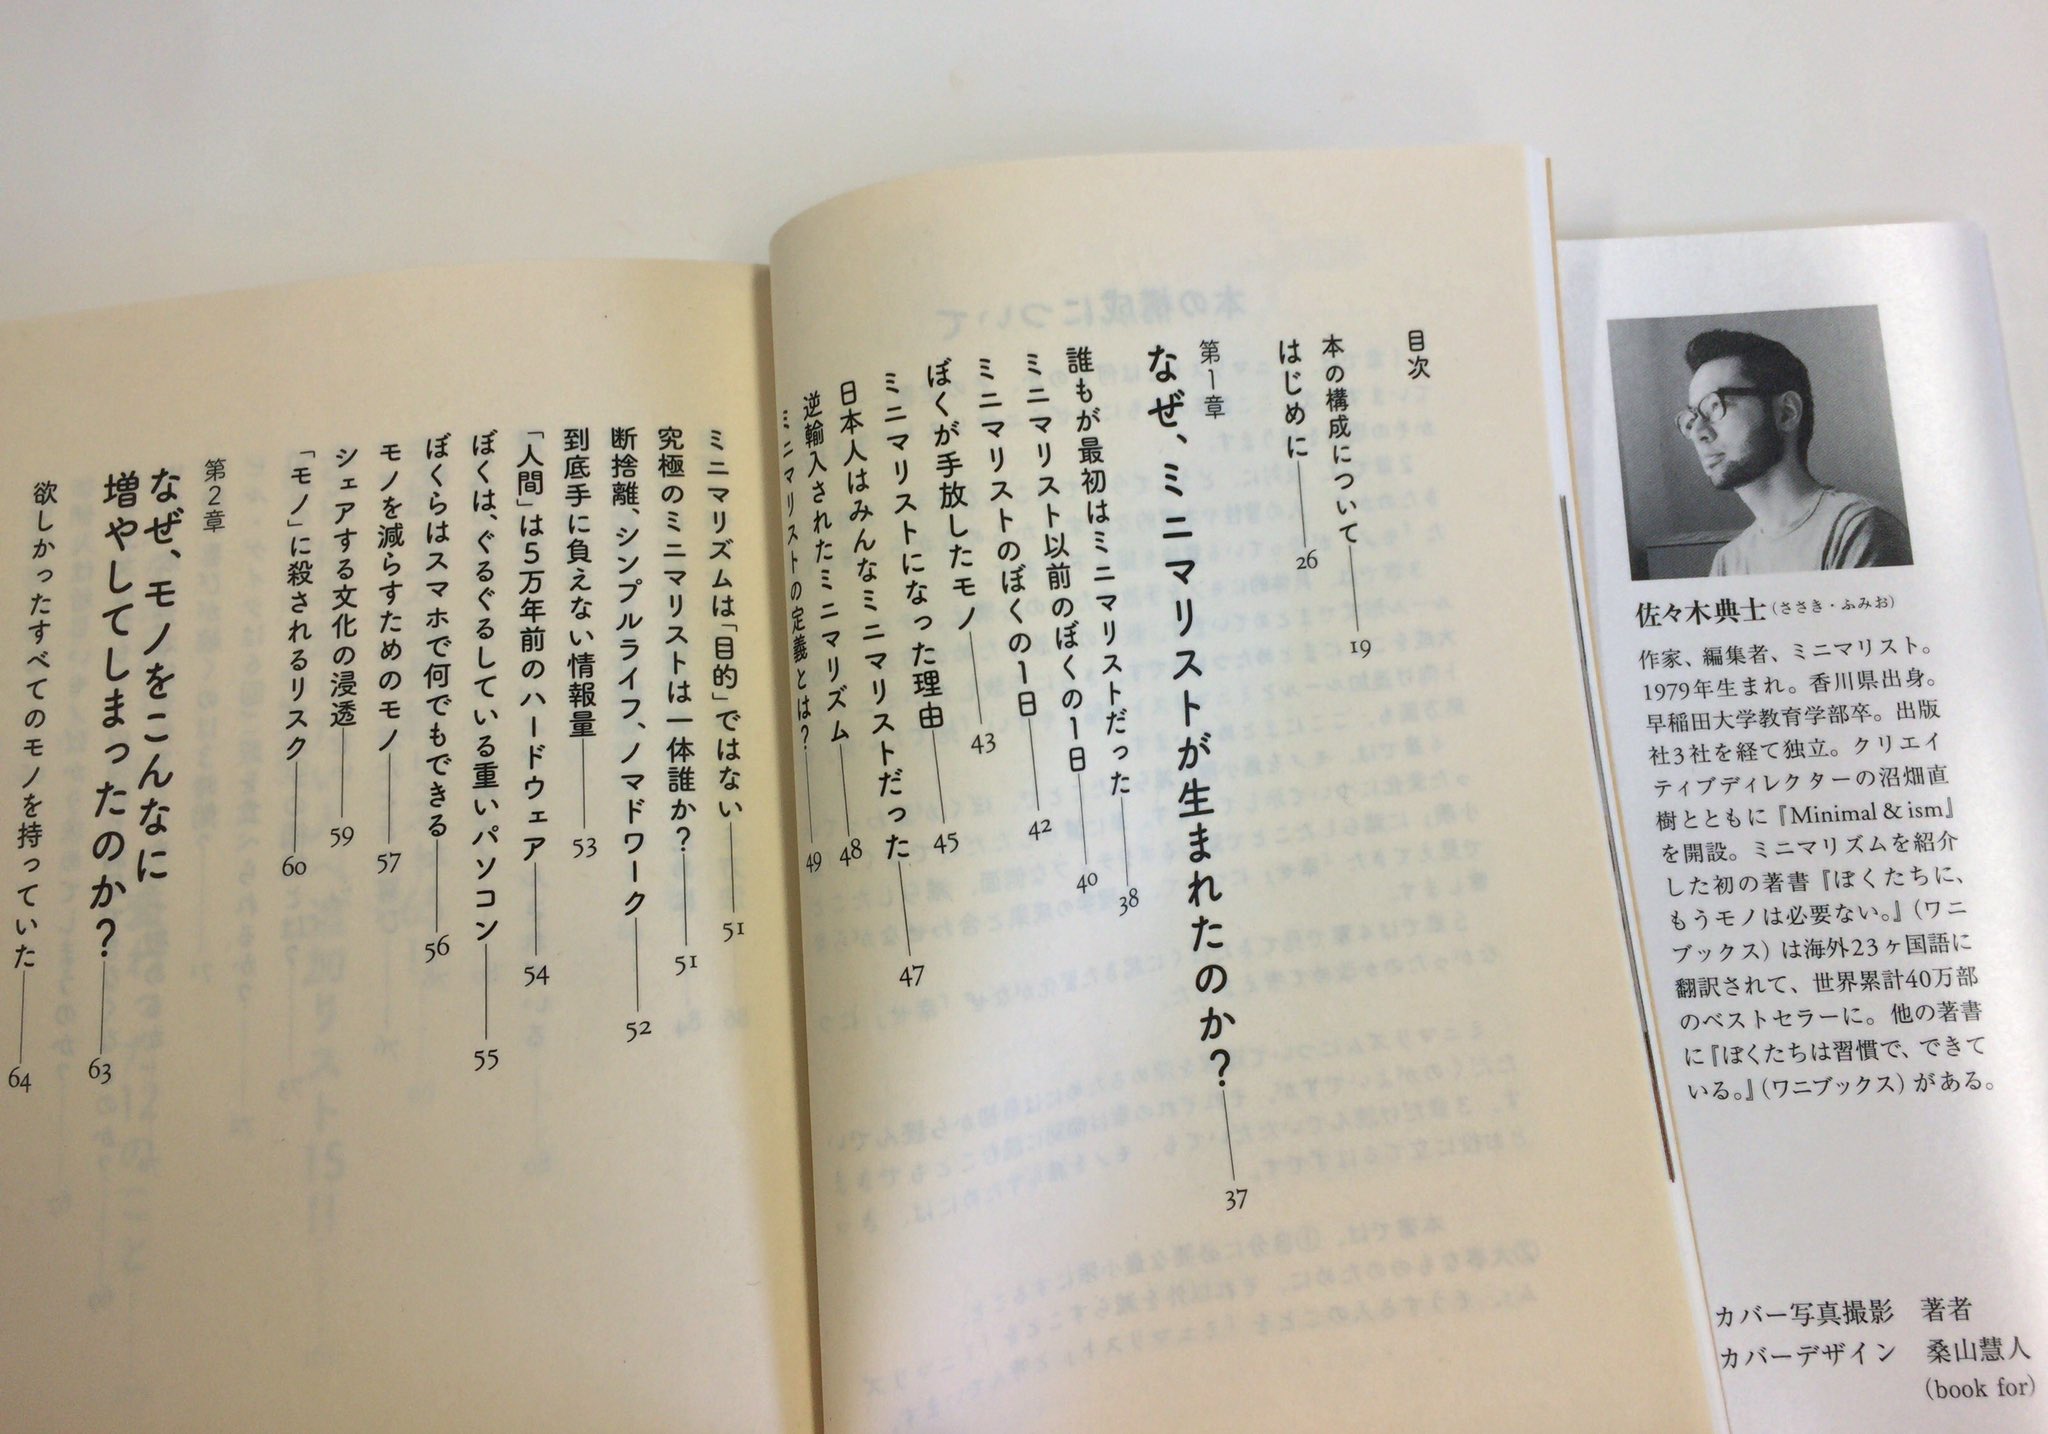 佐々木典士(ささき・ふみお)
作家、編集者、ミニマリスト。
1979年生まれ。香川県出身。
早稲田大学教育学部卒。出版
社3社を経て独立。クリエイ
ティブディレクターの沼畑直
樹とともに『Minimal & ism』
を開設。ミニマリズムを紹介
した初の著書『ぼくたちに、
もうモノは必要ない。』(ワニ
ブックス)は海外23ヶ国語に
翻訳されて、世界累計40万部
のベストセラーに。他の著書
に『ぼくたちは習慣で、できて
いる。』(ワニブックス)がある。
カバー写真撮影 著者
カバーデザイン 桑山慧人
(book for)
目次
本の構成について 19
はじめに 26
第1章
なぜ、ミニマリストが生まれたのか? 37
誰もが最初はミニマリストだった 38
ミニマリスト以前のぼくの1日 40
ミニマリストのぼくの1日 42
ぼくが手放したモノ 43
ミニマリストになった理由 45
日本人はみんなミニマリストだった 47
逆輸入されたミニマリズム 48
ミニマリストの定義とは? 49
ミニマリズムは「目的」ではない 51
究極のミニマリストは一体誰か? 51
断捨離、シンプルライフ、ノマドワーク 52
到底手に負えない情報量 53
「人間」は5万年前のハードウェア 54
ぼくは、ぐるぐるしている重いパソコン 55
ぼくらはスマホで何でもできる 56
モノを減らすためのモノ 57
シェアする文化の浸透 59
「モノ」に殺されるリスク 60
第2章
なぜ、モノをこんなに
増やしてしまったのか? 63
欲しかったすべてのモノを持っていた 64